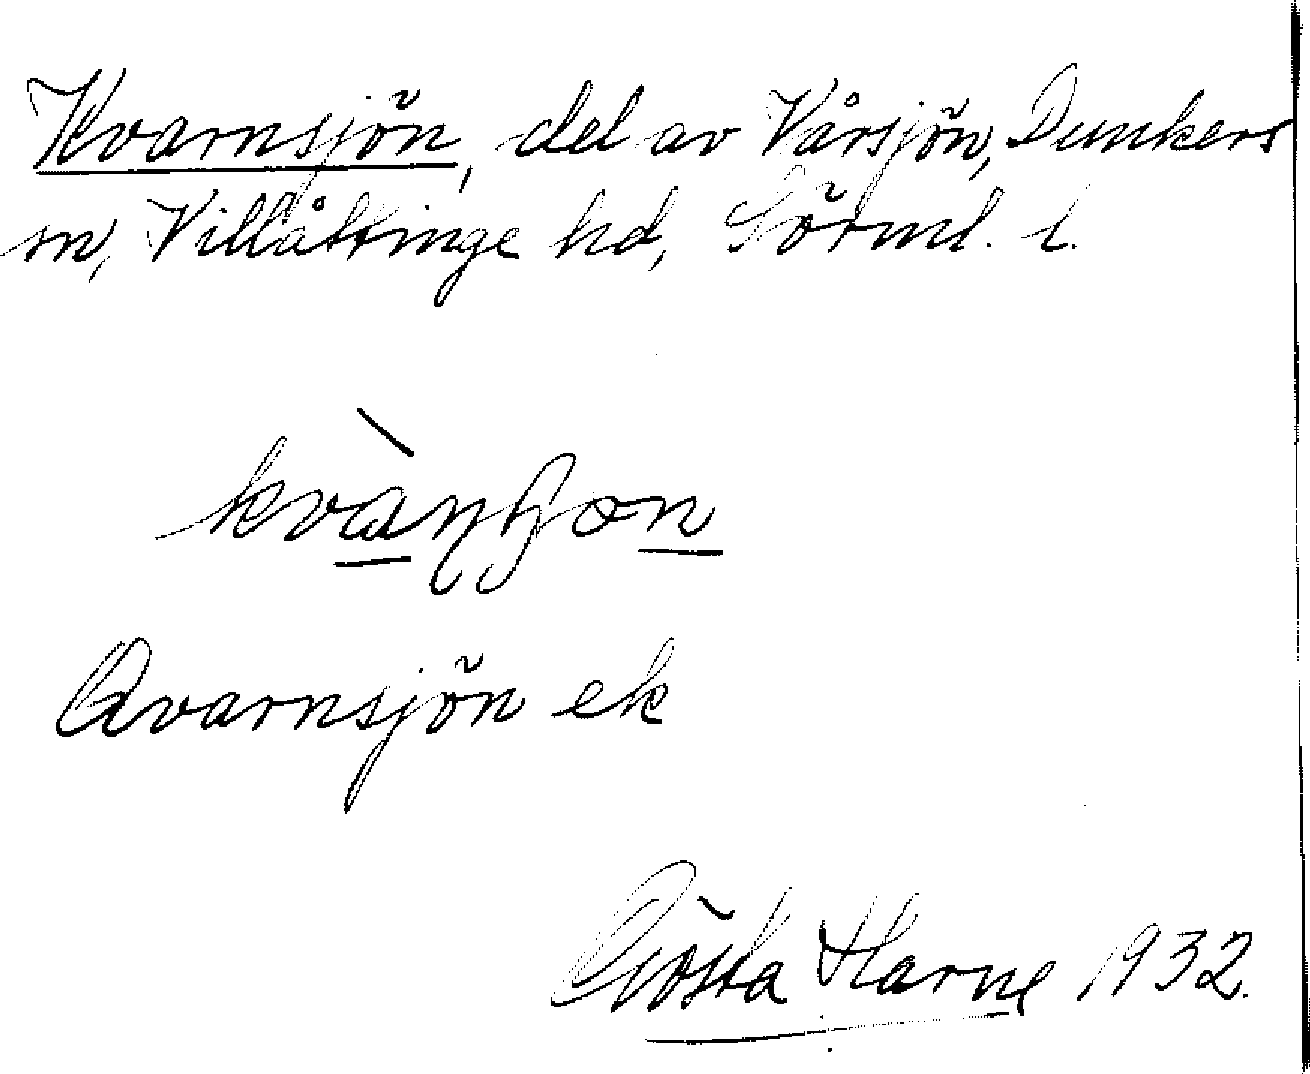 Kvarnsjön, del av Vårsjön, Dunkers
sn, Villåttinge hd, Sörml. l.
Qvarnsjön ek
Gösta Harne 1932.